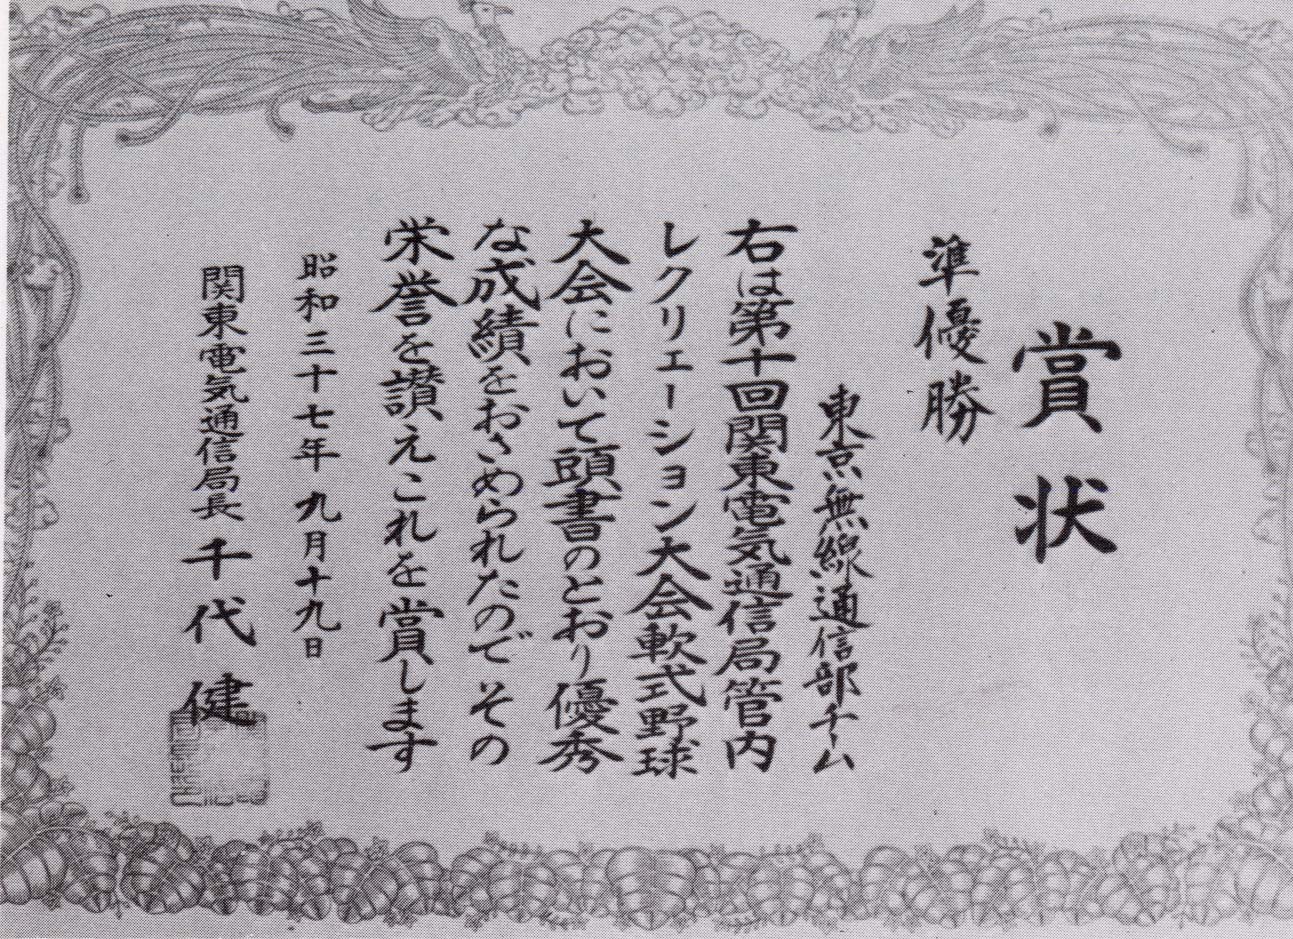 賞状
準優勝
東京無線通信部チーム
右は第十回関東電気通信局管内
レクリエーション大会軟式野球
大会において頭書のとおり優秀
な成績をおさめられたので その
栄誉を讃えこれを賞します
昭和三十七年 九月十九日
関東電気通信局長 千代健